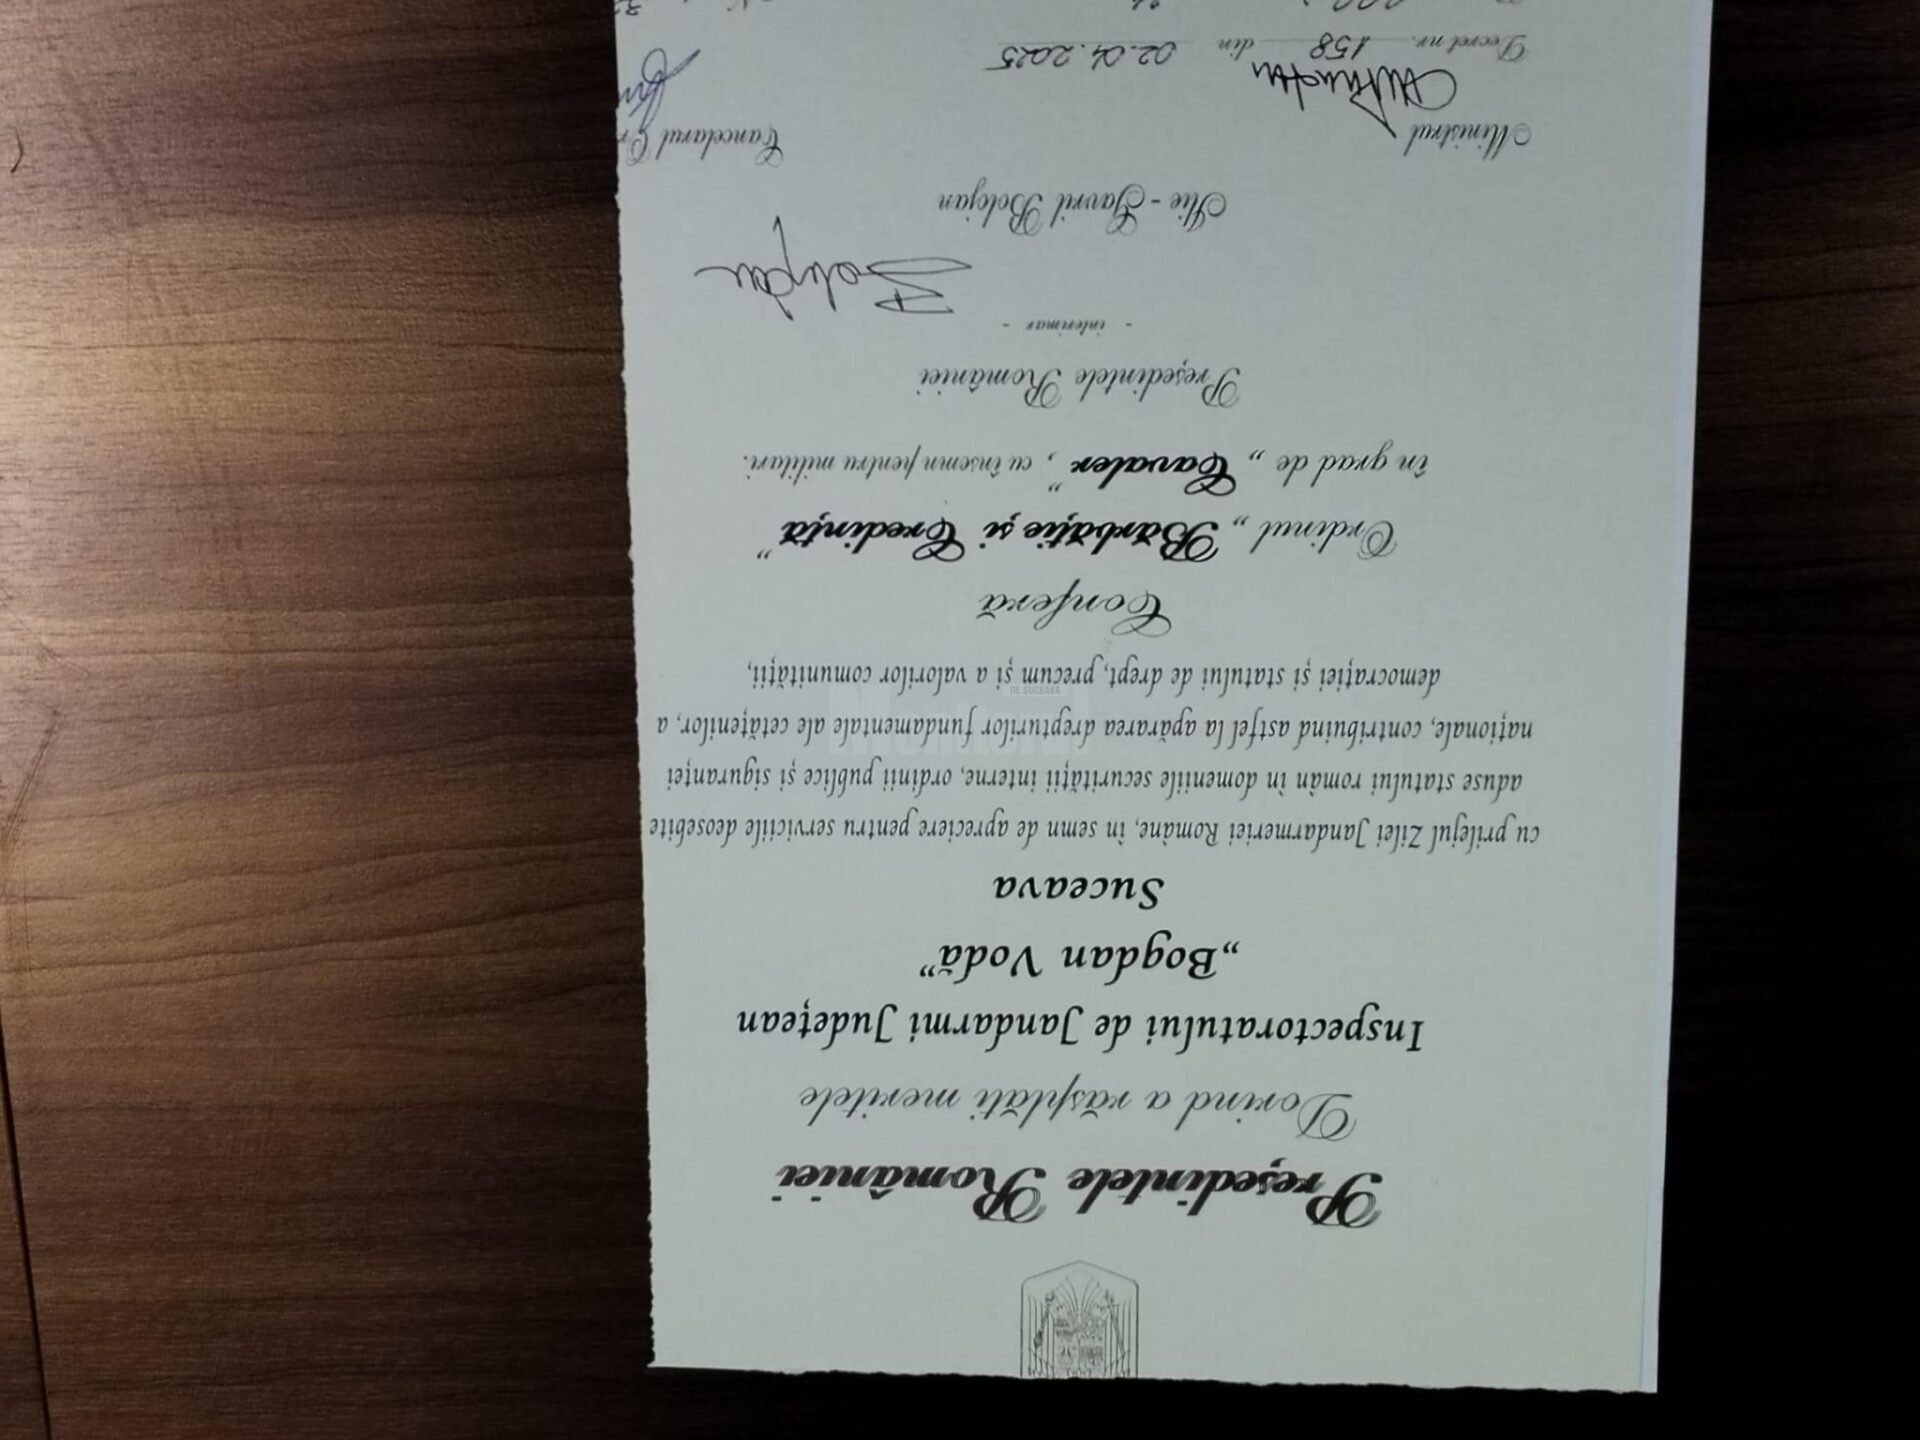 Președintele României
Dorind a răsplăti meritele
Inspectoratului de Jandarmi Județean
„Bogdan Vodă”
Suceava
cu prilejul Zilei Jandarmeriei Române, în semn de apreciere pentru serviciile deosebite
aduse statului român în domeniile securității interne, ordinii publice și siguranței
naționale, contribuind astfel la apărarea drepturilor fundamentale ale cetățenilor, a
democrației și statului de drept, precum și a valorilor comunității,
Conferă
Ordinul „Bărbăție și Credință”
în grad de „Cavaler”, cu însemn pentru militari.
Președintele României
- interimar -
Ilie - Gavril Bolojan
Ministrul Cancelarul Or
Decret nr. 158 din 02.04.2025
Monitorul
DE SUCEAVA